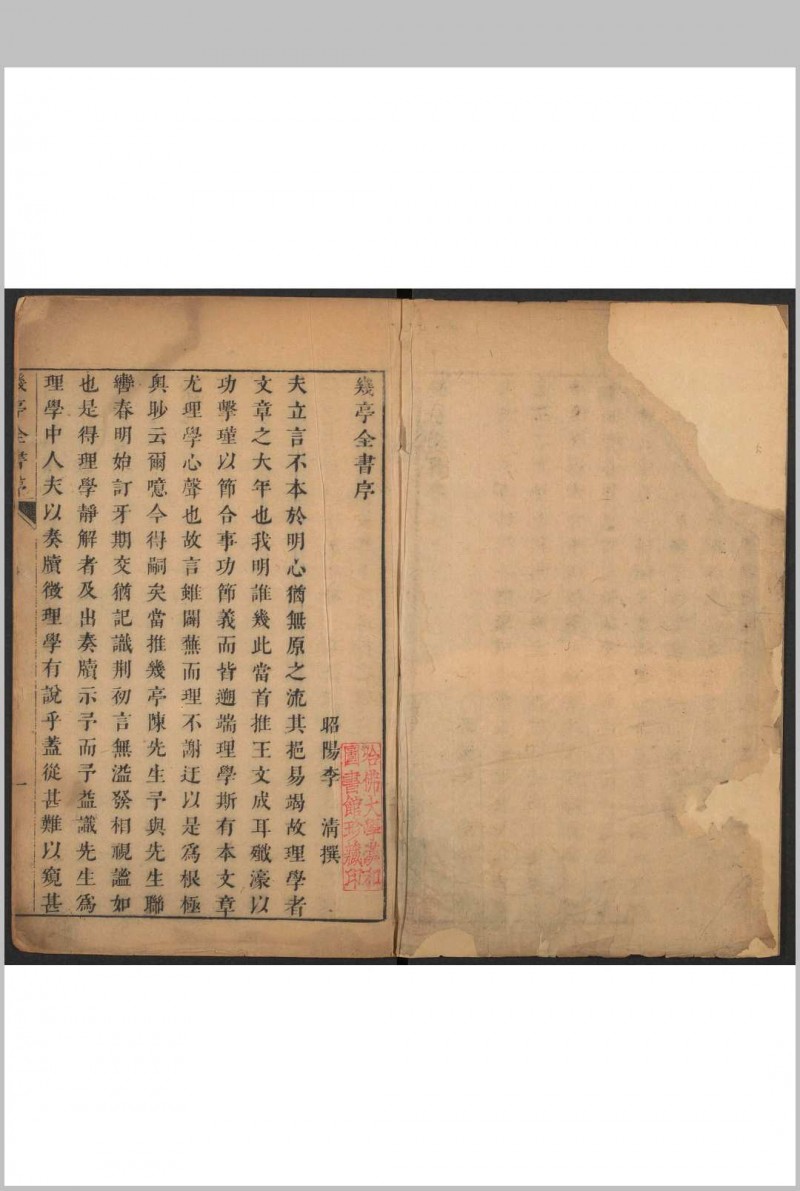 幾亭全書序
昭陽李　清撰
夫立言不本於明心猶無原之流其挹易竭故理學者
文章之大年也我明誰幾此當首推王文成耳殲濠以
功擊瑾以節合事功節義而皆遡端理學斯有本文章
尤理學心聲也故言雖闢蕪而理不謝迂以是爲根極
與耿云爾噫今得嗣矣當推幾亭陳先生予與先生聯
轡春明始訂牙期交猶記識荆初言無溢發相視謐如
也是得理學靜解者及出奏牘示予而予益識先生爲
理學中人夫以奏牘徵理學有說乎蓋從甚難以窺甚
幾亭全書序
一
哈佛大學漢和
圖書館珍藏印